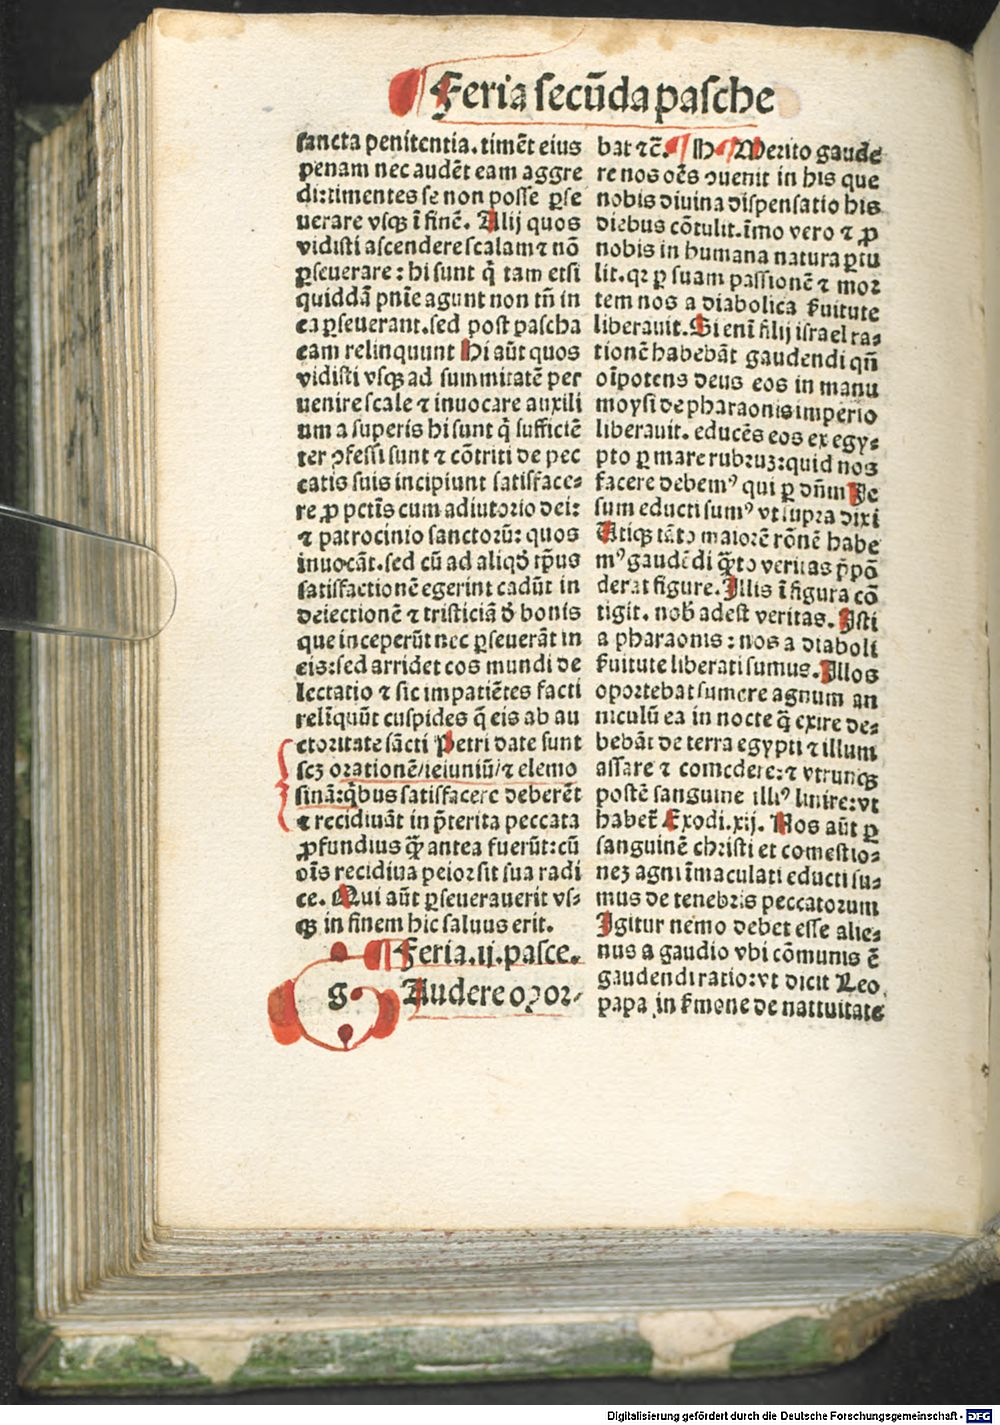 Feria secūda pasche
sancta penitentia. timēt eius
penam nec audēt eam aggre
di: timentes se non posse ꝑse
uerare vsqꝫ ī finē. Alij quos
vidisti ascendere scalam ⁊ nō
ꝑseuerare: hi sunt q̄ tam etsi
quiddā pnīe agunt non tn̄ in
ea ꝑseuerant. sed post pascha
eam relinquunt Hi aūt quos
vidisti vsqꝫ ad summitatē per
uenire scale ⁊ inuocare auxili
um a superis hi sunt q̄ sufficiē
ter ꝯfessi sunt ⁊ cōtriti de pec
catis suis incipiunt satisface⸗
re ꝓ pctīs cum adiutorio dei:
⁊ patrocinio sanctorū: quos
inuocāt. sed cū ad aliqď tp̄us
satisfactionē egerint cadūt in
deiectionē ⁊ tristiciā ď bonis
que inceperūt nec ꝑseuerāt in
eis: sed arridet eos mundi de
lectatio ⁊ sic impatiētes facti
relīquūt cuspides q̄ eis ab au
ctoritate sācti Petri date sunt
scꝫ orationē/ ieiuniū/ ⁊ elemo
sinā: qb̄us satisfacere deberēt
⁊ recidiuāt in p̄terita peccata
ꝓfundius q̄ꝫ antea fuerūt: cū
oīs recidiua peior sit sua radi
ce. Qui aūt ꝑseuerauerit vs⸗
qꝫ in finem hic saluus erit.
Feria. ij. pasce.
g Audere opor⸗
bat ⁊c̄. H Merito gaude
re nos oēs ꝯuenit in his que
nobis diuina dispensatio his
diebus cōtulit. īmo vero ⁊ ꝓ
nobis in humana natura ꝑtu
lit. qꝛ ꝑ suam passionē ⁊ mor
tem nos a diabolica ẜuitute
liberauit. Si enī filij israel ra⸗
tionē habebāt gaudendi qn̄
oīpotens deus eos in manu
moysi de pharaonis imperio
liberauit. educēs eos ex egy⸗
pto ꝑ mare rubruꝫ: quid nos
facere debemꝰ qui ꝑ dn̄m Je
sum educti sumꝰ vt supra dixi
Utiqꝫ tāto maiorē rōnē habe
mꝰ gaudēdi q̄ꝫto veritas p̄pō
derat figure. Illis ī figura cō
tigit. nob̄ adest veritas. Isti
a pharaonis: nos a diaboli
ẜuitute liberati sumus. Illos
oportebat sumere agnum an
niculū ea in nocte q̄ exire de⸗
bebāt de terra egypti ⁊ illum
assare ⁊ comedere: ⁊ vtrunqꝫ
postē sanguine illiꝰ linire: vt
habet̄ Exodi. xij. Nos aūt ꝑ
sanguinē christi et comestio⸗
neꝫ agni īmaculati educti su⸗
mus de tenebris peccatorum
Igitur nemo debet esse alie⸗
nus a gaudio vbi cōmunis ē
gaudendi ratio: vt dicit Leo
papa in ẜmone de natiuitate
Digitalisierung gefördert durch die Deutsche Forschungsgemeinschaft - DFG